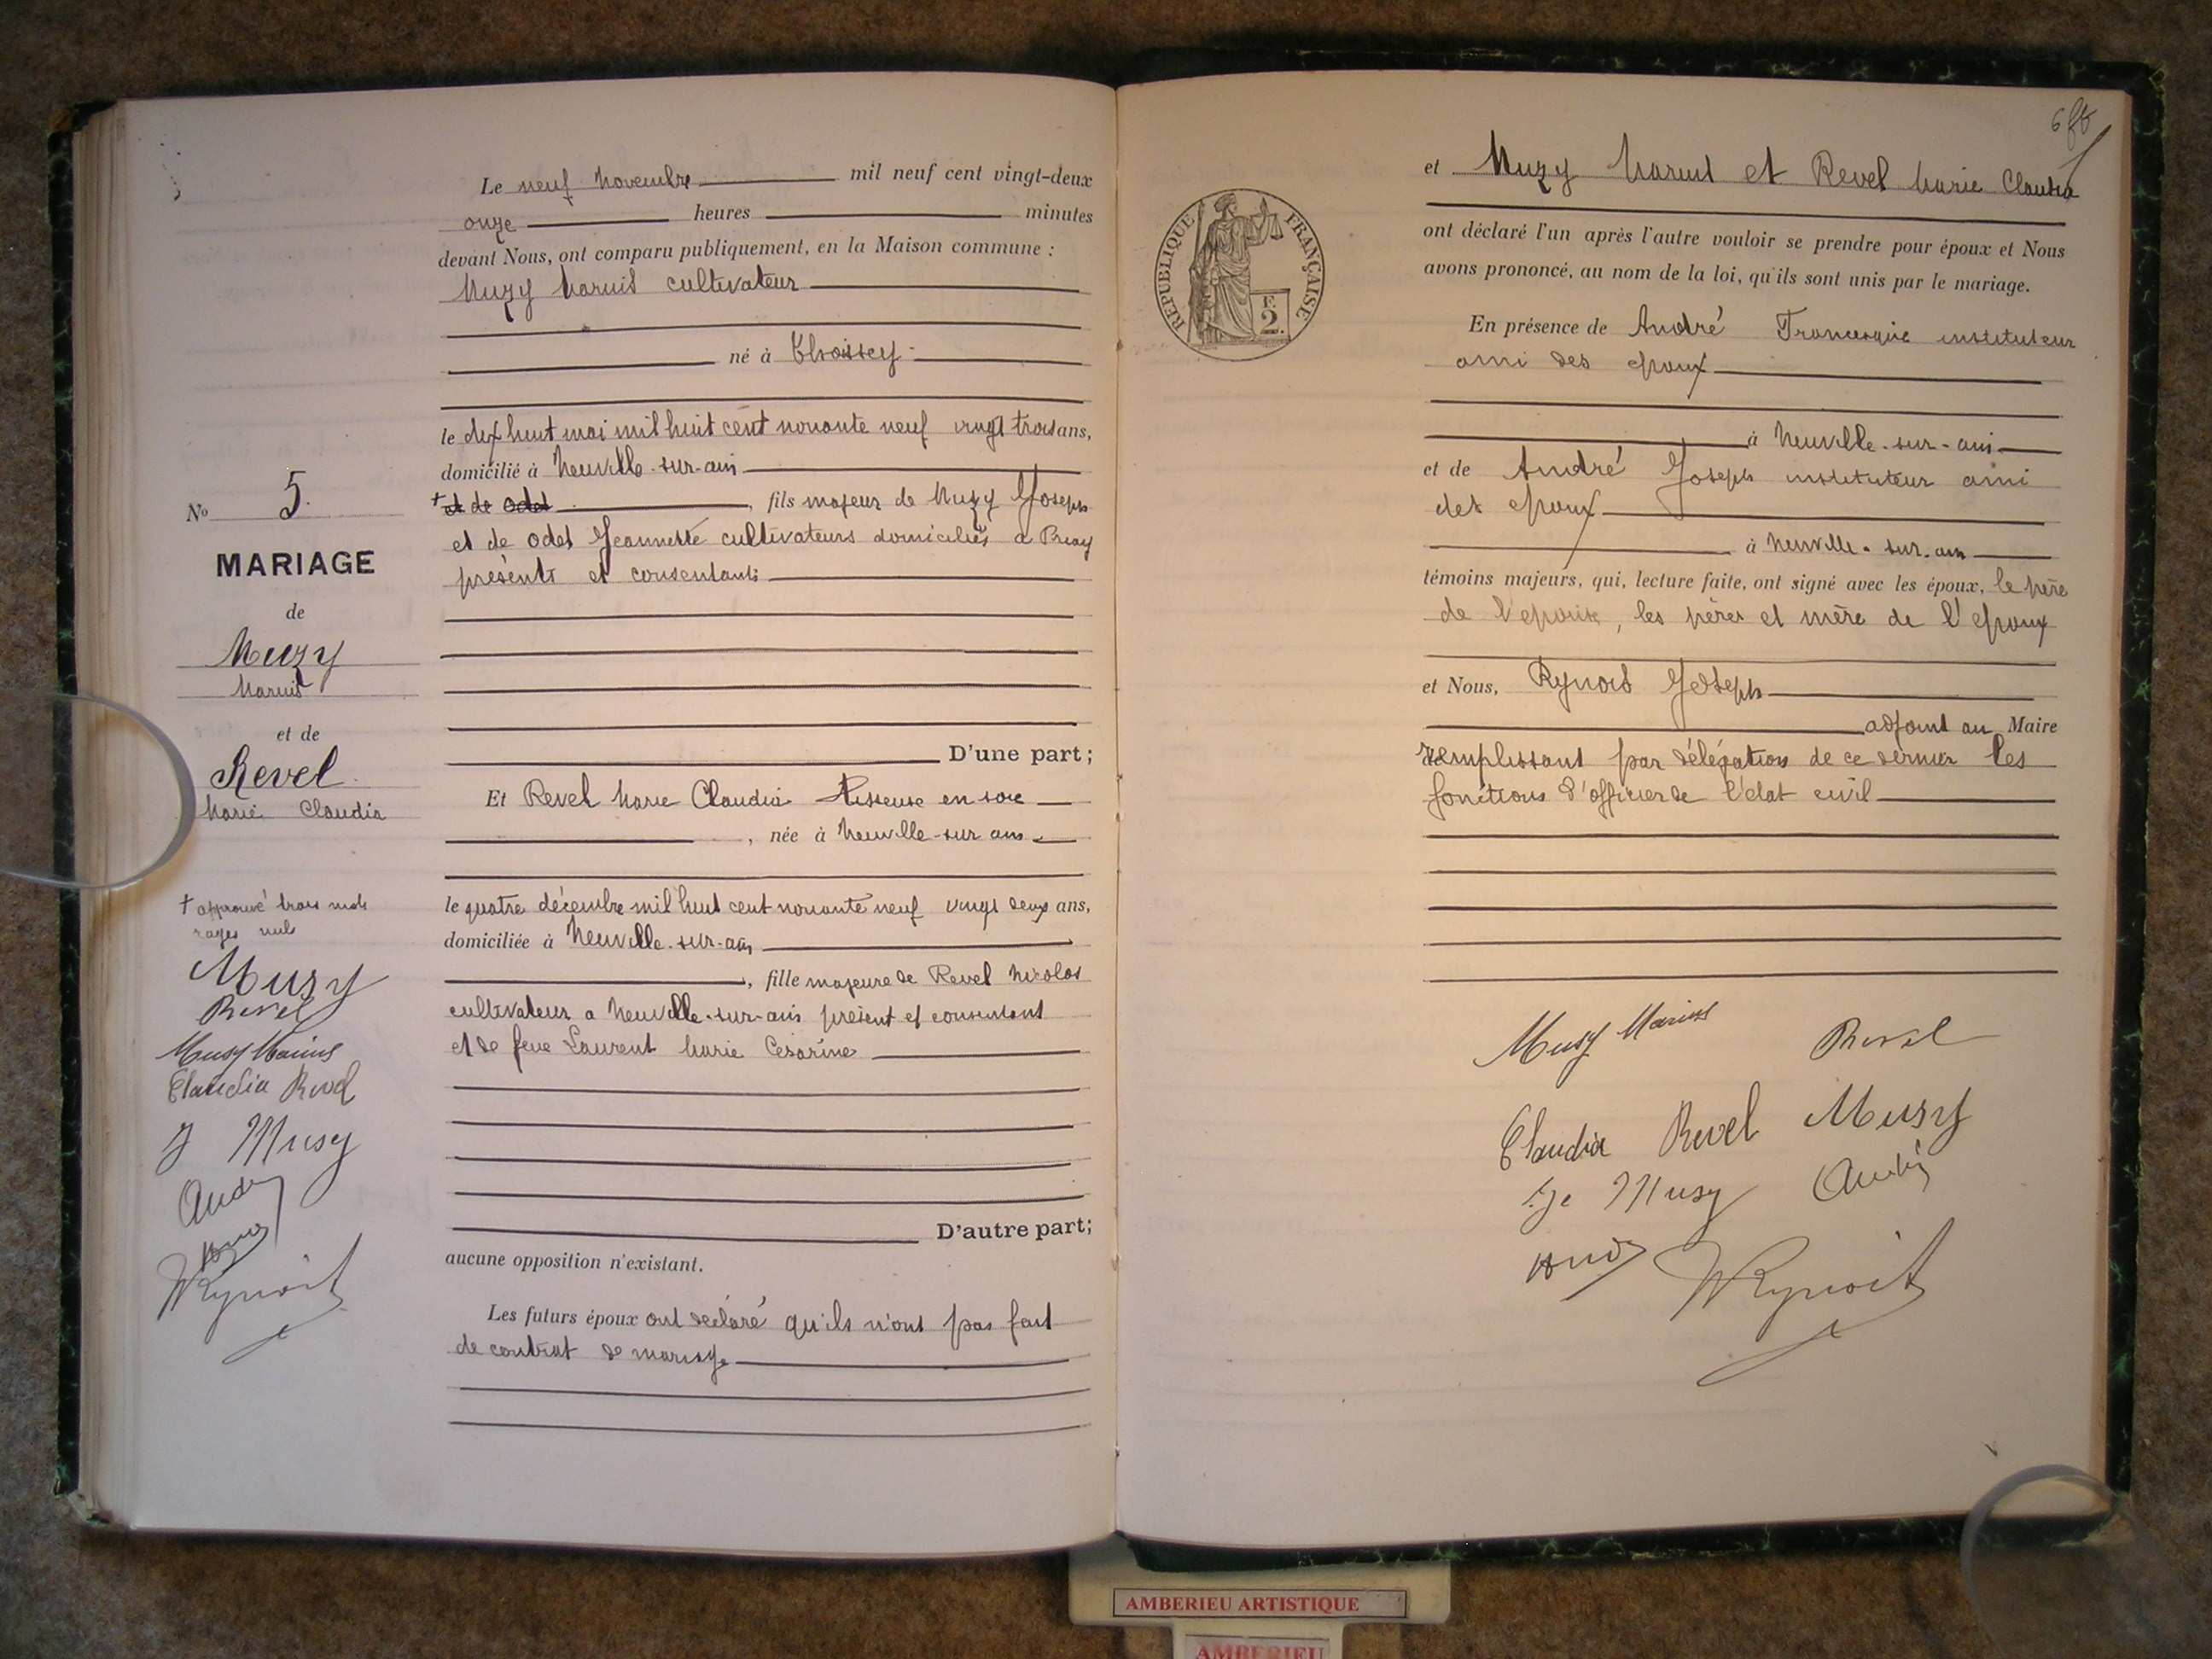 Le neuf Novembre mil neuf cent vingt-deux
onze heures minutes
devant Nous, ont comparu publiquement, en la Maison commune :
Muzy Marius cultivateur
né à
le dix huit mai mil huit cent nonante neuf vingt trois ans,
domicilié à Neuville-sur-ain
+ et de Odet , fils majeur de Muzy Joseph
et de Odet Jeannette cultivateurs domiciliés à Priay
présents et consentants
D'une part;
Et Revel Marie Claudia Tisseuse en soie
, née à Neuville-sur ain
le quatre décembre mil huit cent nonante neuf vingt deux ans,
domiciliée à Neuville-sur-ain
, fille majeure de Revel Nicolas
cultivateur a Neuville-sur-ain présent et consentant
et de feue Laurent Marie Césarine
D'autre part;
aucune opposition n'existant.
Les futurs époux ont déclaré qu'ils n'ont pas fait
de contrat de mariage
No 5.
MARIAGE
de
Muzy
Marius
et de
Revel
Marie Claudia
+ approuvé trois mots
rayés nuls
Musy
Revel
Musy Marius
Claudia Revel
J Musy
André
Rynoit
6
et Muzy Marius et Revel Marie Claudia
ont déclaré l'un après l'autre vouloir se prendre pour époux et Nous
avons prononcé, au nom de la loi, qu'ils sont unis par le mariage.
En présence de André Francisque instituteur
ami des époux
à Neuville-sur-ain
et de André Joseph instituteur ami
des époux
à Neuville-sur-ain
témoins majeurs, qui, lecture faite, ont signé avec les époux, le père
de l'épouse, les père et mère de l'époux
et Nous, Rynoit Joseph
adjoint au Maire
remplissant par délégation de ce dernier les
fonctions d'officier de l'état civil
RÉPUBLIQUE FRANÇAISE
F.
2
Musy Marius Revel
Claudia Revel Musy
Musy André
Rynoit
AMBERIEU ARTISTIQUE
AMBERIEU